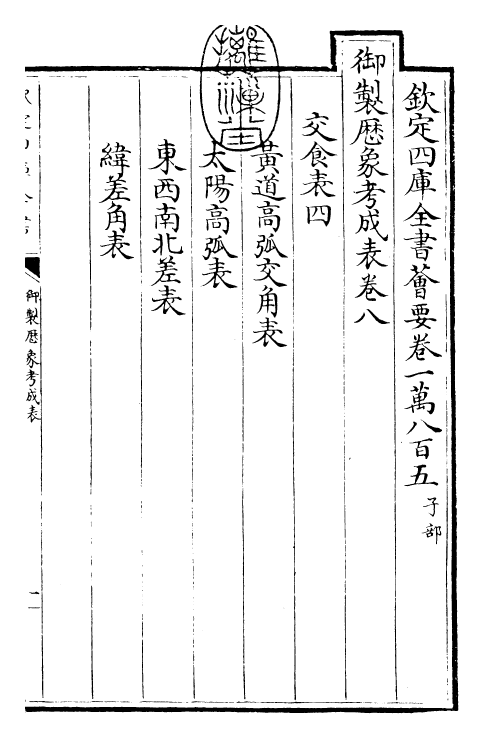 欽定四庫全書薈要卷一萬八百五 子部
御製歷象考成表卷八
交食表四
黃道高弧交角表
太陽高弧表
東西南北差表
緯差角表
御製歷象考成表